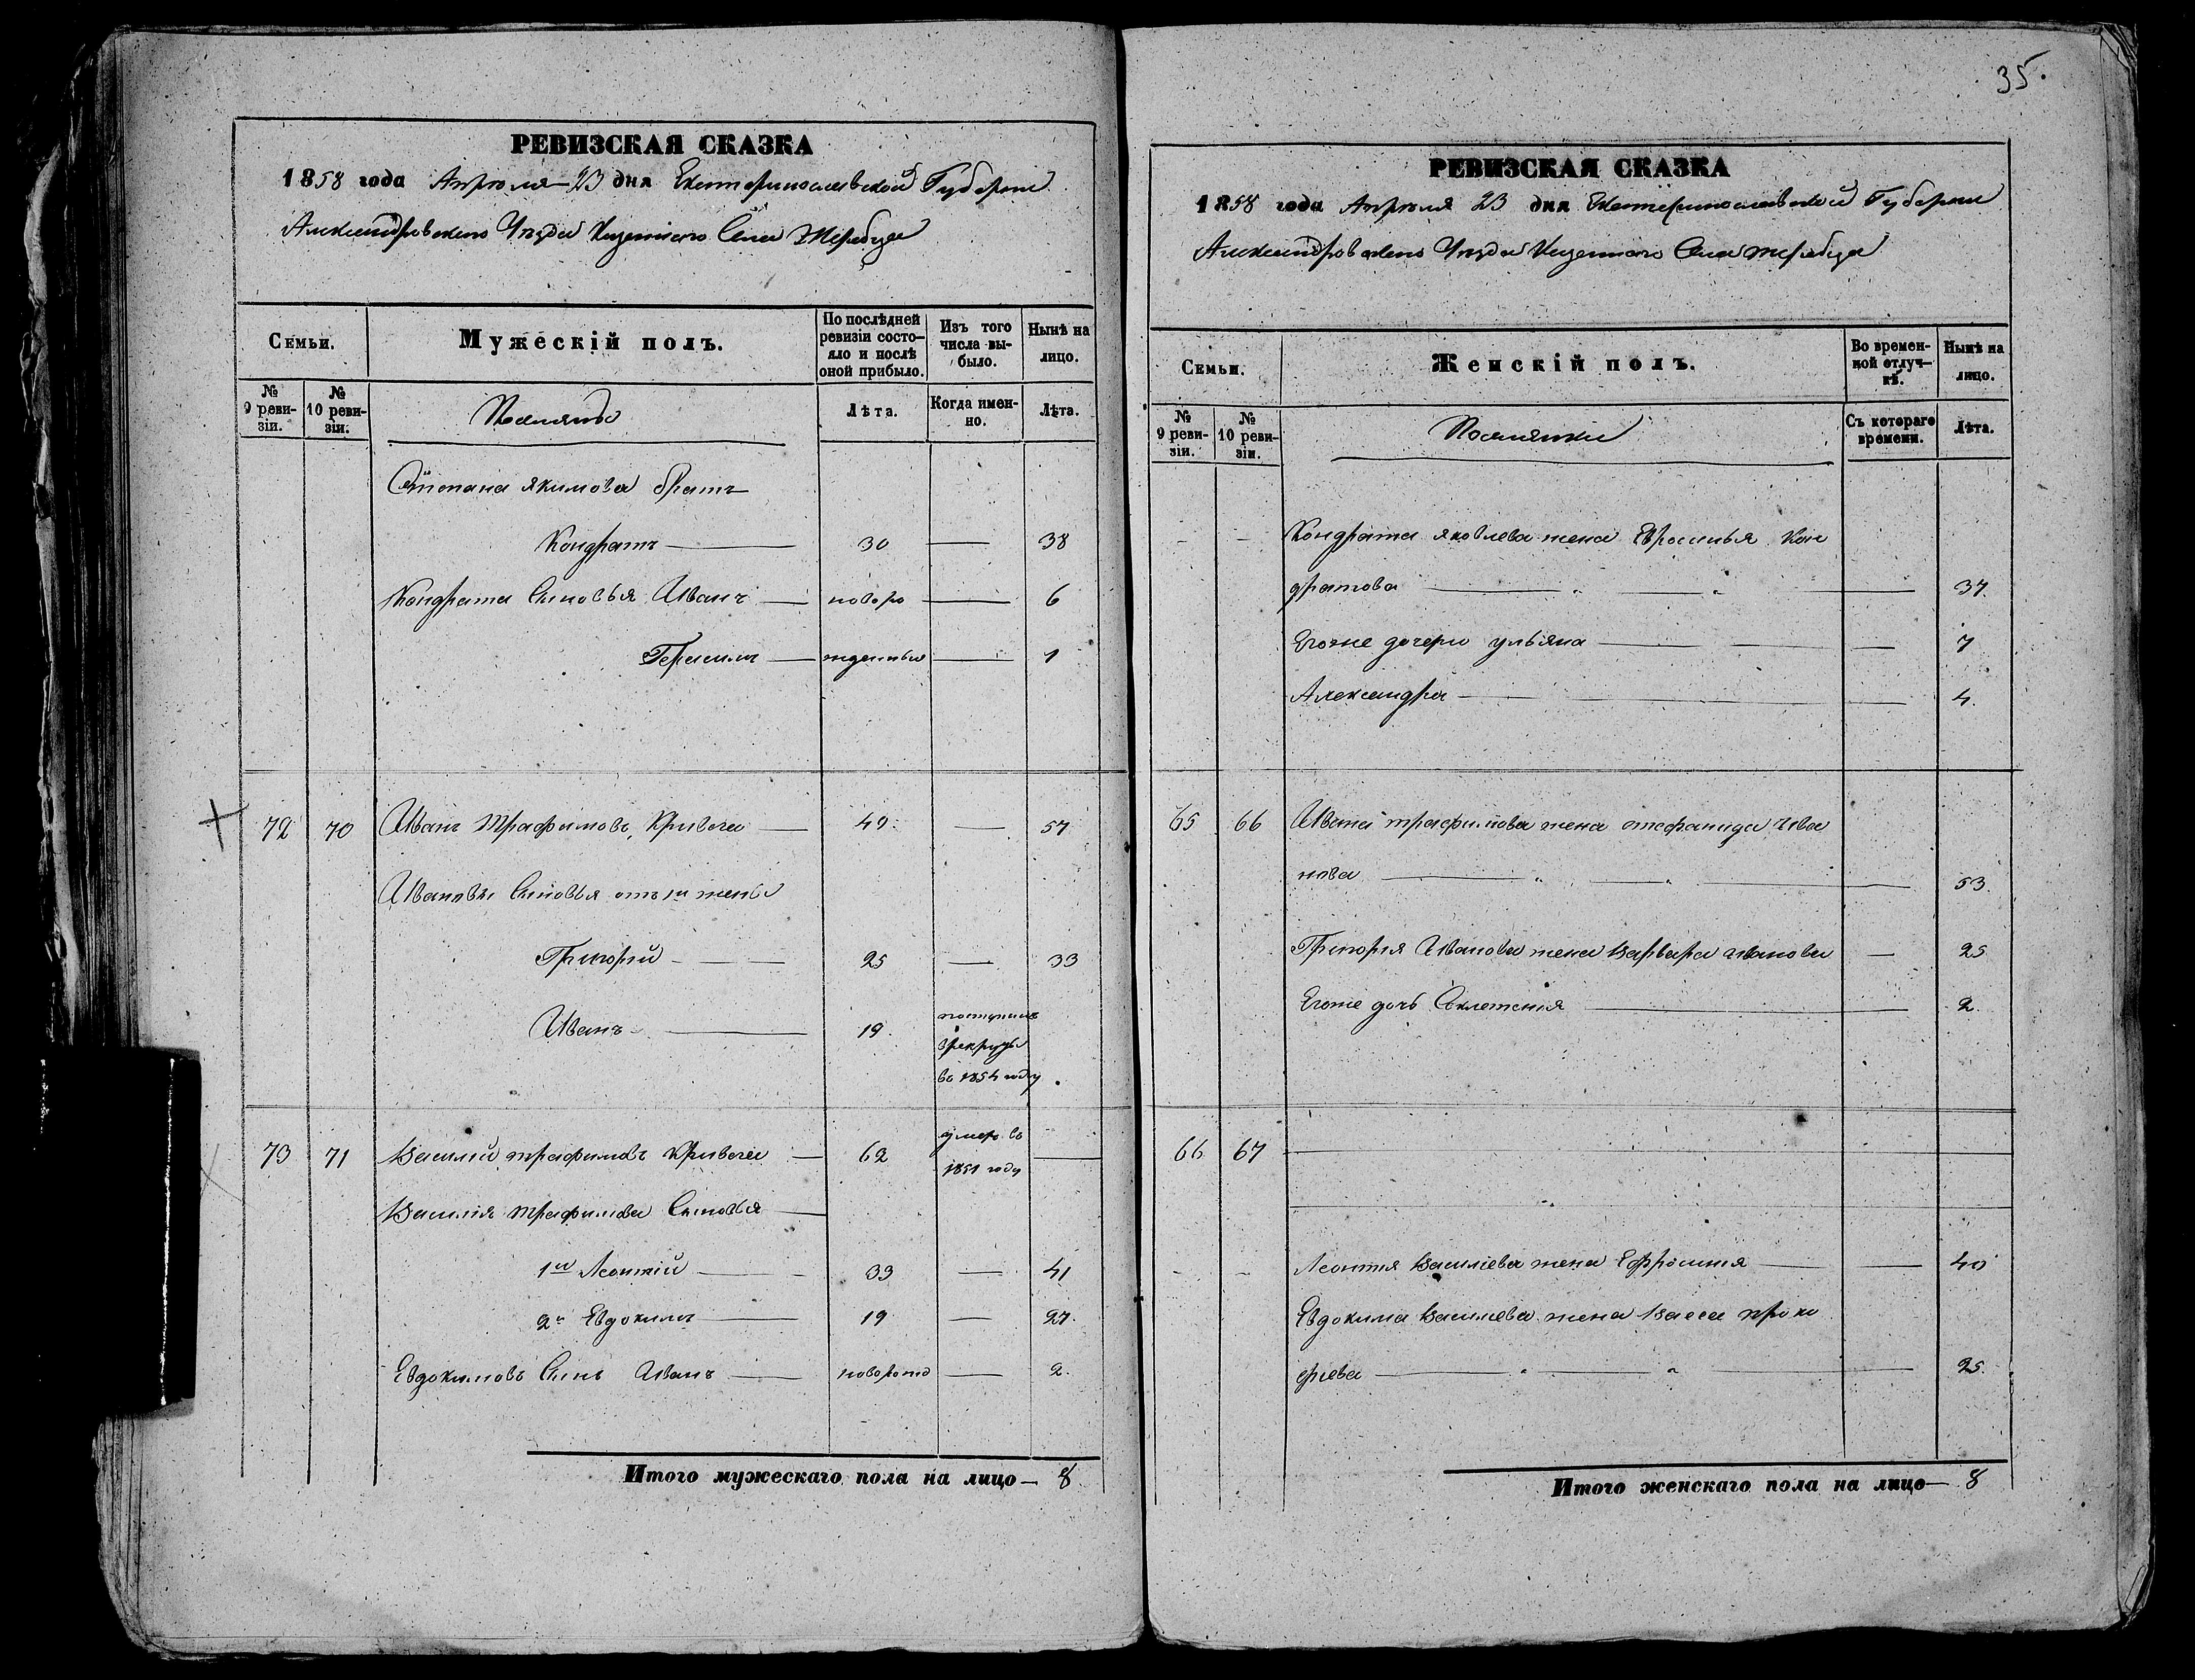 РЕВИЗСКАЯ СКАЗКА
1858 года Апреля 23 дня Екатеринославской Губернии
Александровского Уезда Казенного Села Жеребца
Семьи.
Мужескій полъ.
По послѣдней ревизіи состояло и послѣ оной прибыло.
Изъ того числа выбыло.
Нынѣ на лицо.
№ 9 ревизіи.
№ 10 ревизіи.
Поселянъ
Лѣта.
Когда именно.
Лѣта.
Степана Якимова братъ
Кондратъ — 30 — 38
Кондрата Сыновья Иванъ — новоро — 6
Герасимъ — жденныя — 1
72 70 Иванъ Трафимовъ Кривеча — 49. — 57
Ивановы Сыновья отъ 1й жены
Григорий — 25 — 33
Иванъ — 19. поступилъ
в рекруты
въ 1854 году
73 71 Василий Трафимовъ Кривеча — 62 умеръ въ
1851 году
Василия Трафимова Сыновья —
1й Леонтій — 33 — 41
2й Евдокимъ — 19 — 27.
Евдокимовъ Сынъ Иванъ — поворотд — 2.
Итого мужескаго пола на лицо — 8
35.
РЕВИЗСКАЯ СКАЗКА
1858 года Апреля 23 дня Екатеринославской Губернии
Александровского Уезда Казенного Села Жеребца
Семьи.
Женскій полъ.
Во временной отлучкѣ.
Нынѣ на лицо.
№ 9 ревизіи.
№ 10 ревизіи.
Поселянки
Съ котораго времени.
Лѣта.
Кондрата Яковлева жена Евросинья Кон
дратова — " — " — 37.
Егоже дочери Ульяна — 7
Александра — 4.
65 66 Ивана Трафимова жена Стефанида Ива
нова — " — " — 53.
Григория Иванова жена Варвара Иванова — 25
Егоже дочь Секлетения — 2.
66 67
Леонтия Василиева жена Ефросиния — 40
Евдокима Василиева жена Васса Проко
фиева — " — " — 25.
Итого женскаго пола на лицо — 8